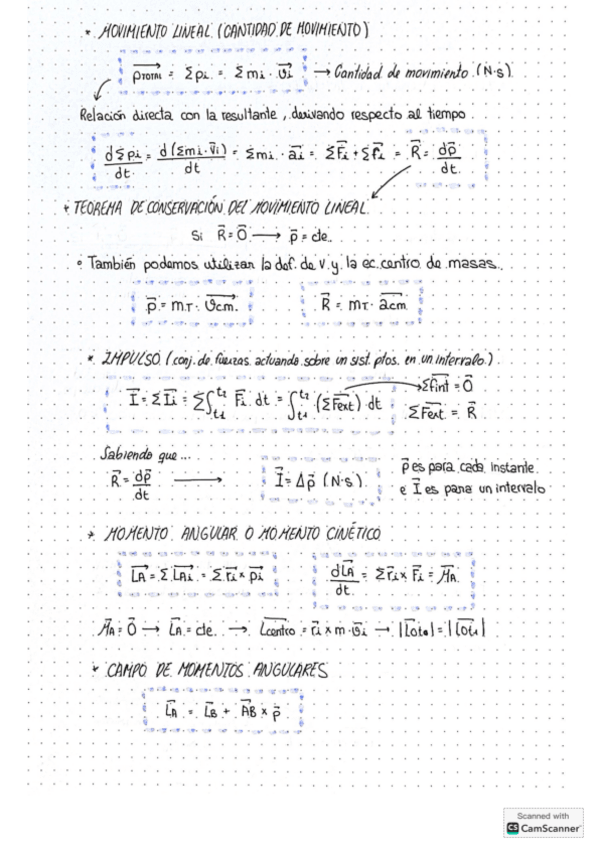 * MOVIMIENTO LINEAL (CANTIDAD DE MOVIMIENTO)
p⃗TOTAL = Σp⃗i = Σmi · v⃗i → Cantidad de movimiento (N·s)
Relación directa con la resultante, derivando respecto al tiempo.
dΣp⃗i/dt = d(Σmi·v⃗i)/dt = Σmi · a⃗i = ΣF⃗i + Σf⃗i = R⃗ = dp⃗/dt
* TEOREMA DE CONSERVACIÓN DEL MOVIMIENTO LINEAL
Si R⃗ = 0⃗ → p⃗ = cte.
• También podemos utilizar la def. de v y la ec. centro de masas.
p⃗ = mT · v⃗cm. R⃗ = mT · a⃗cm
* IMPULSO (conj. de fuerzas actuando sobre un sist. ptos. en un intervalo)
I⃗ = ΣI⃗i = Σ∫t1t2 F⃗i dt = ∫t1t2 (ΣF⃗ext) dt → Σf⃗int = 0⃗
ΣF⃗ext = R⃗
Sabiendo que...
R⃗ = dp⃗/dt → I⃗ = Δp⃗ (N·s)
p⃗ es para cada instante
e I⃗ es para un intervalo
* MOMENTO ANGULAR O MOMENTO CINÉTICO
L⃗A = ΣL⃗Ai = Σr⃗i × p⃗i dL⃗A/dt = Σr⃗i × F⃗i = M⃗A
M⃗A = 0⃗ → L⃗A = cte. → L⃗centro = r⃗i × m · v⃗i → |L⃗oto| = |L⃗ot1|
* CAMPO DE MOMENTOS ANGULARES
L⃗A = L⃗B + A⃗B × p⃗
Scanned with
CS CamScanner